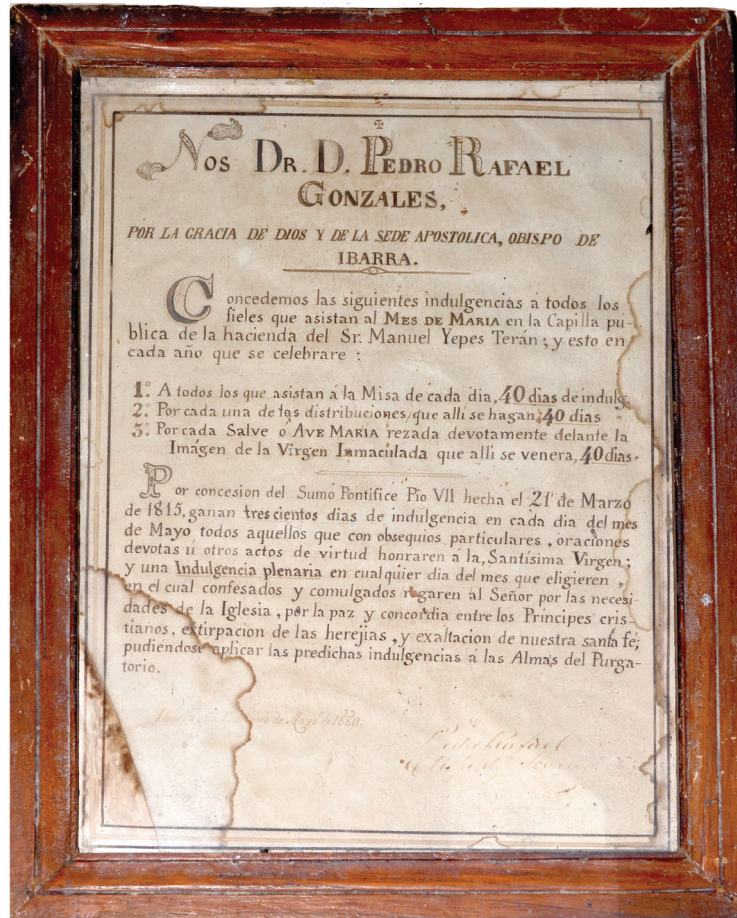 Nos Dr. D. Pedro Rafael
Gonzales,
POR LA GRACIA DE DIOS Y DE LA SEDE APOSTOLICA, OBISPO DE
IBARRA.
Concedemos las siguientes indulgencias a todos los
fieles que asistan al MES DE MARIA en la Capilla pu-
blica de la hacienda del Sr. Manuel Yepes Terán; y esto en
cada año que se celebrare:
1.º A todos los que asistan á la Misa de cada dia, 40 dias de indulg.
2.º Por cada una de las distribuciones, que allí se hagan, 40 dias "
3.º Por cada Salve ó AVE MARIA rezada devotamente delante la
Imágen de la Virgen Inmaculada que alli se venera, 40 dias "
Por concesion del Sumo Pontifice Pio VII hecha el 21 de Marzo
de 1815, ganan trescientos dias de indulgencia en cada dia del mes
de Mayo todos aquellos que con obsequios particulares, oraciones
devotas ú otros actos de virtud honraren á la Santísima Virgen;
y una Indulgencia plenaria en cualquier dia del mes que eligieren,
en el cual confesados y comulgados rogaren al Señor por las necesi-
dades de la Iglesia, por la paz y concordia entre los Príncipes cris-
tianos, extirpacion de las herejias, y exaltacion de nuestra santa fé;
pudiéndose aplicar las predichas indulgencias á las Almas del Purga-
torio.
de Mayo de 1880.
Pedro Rafael